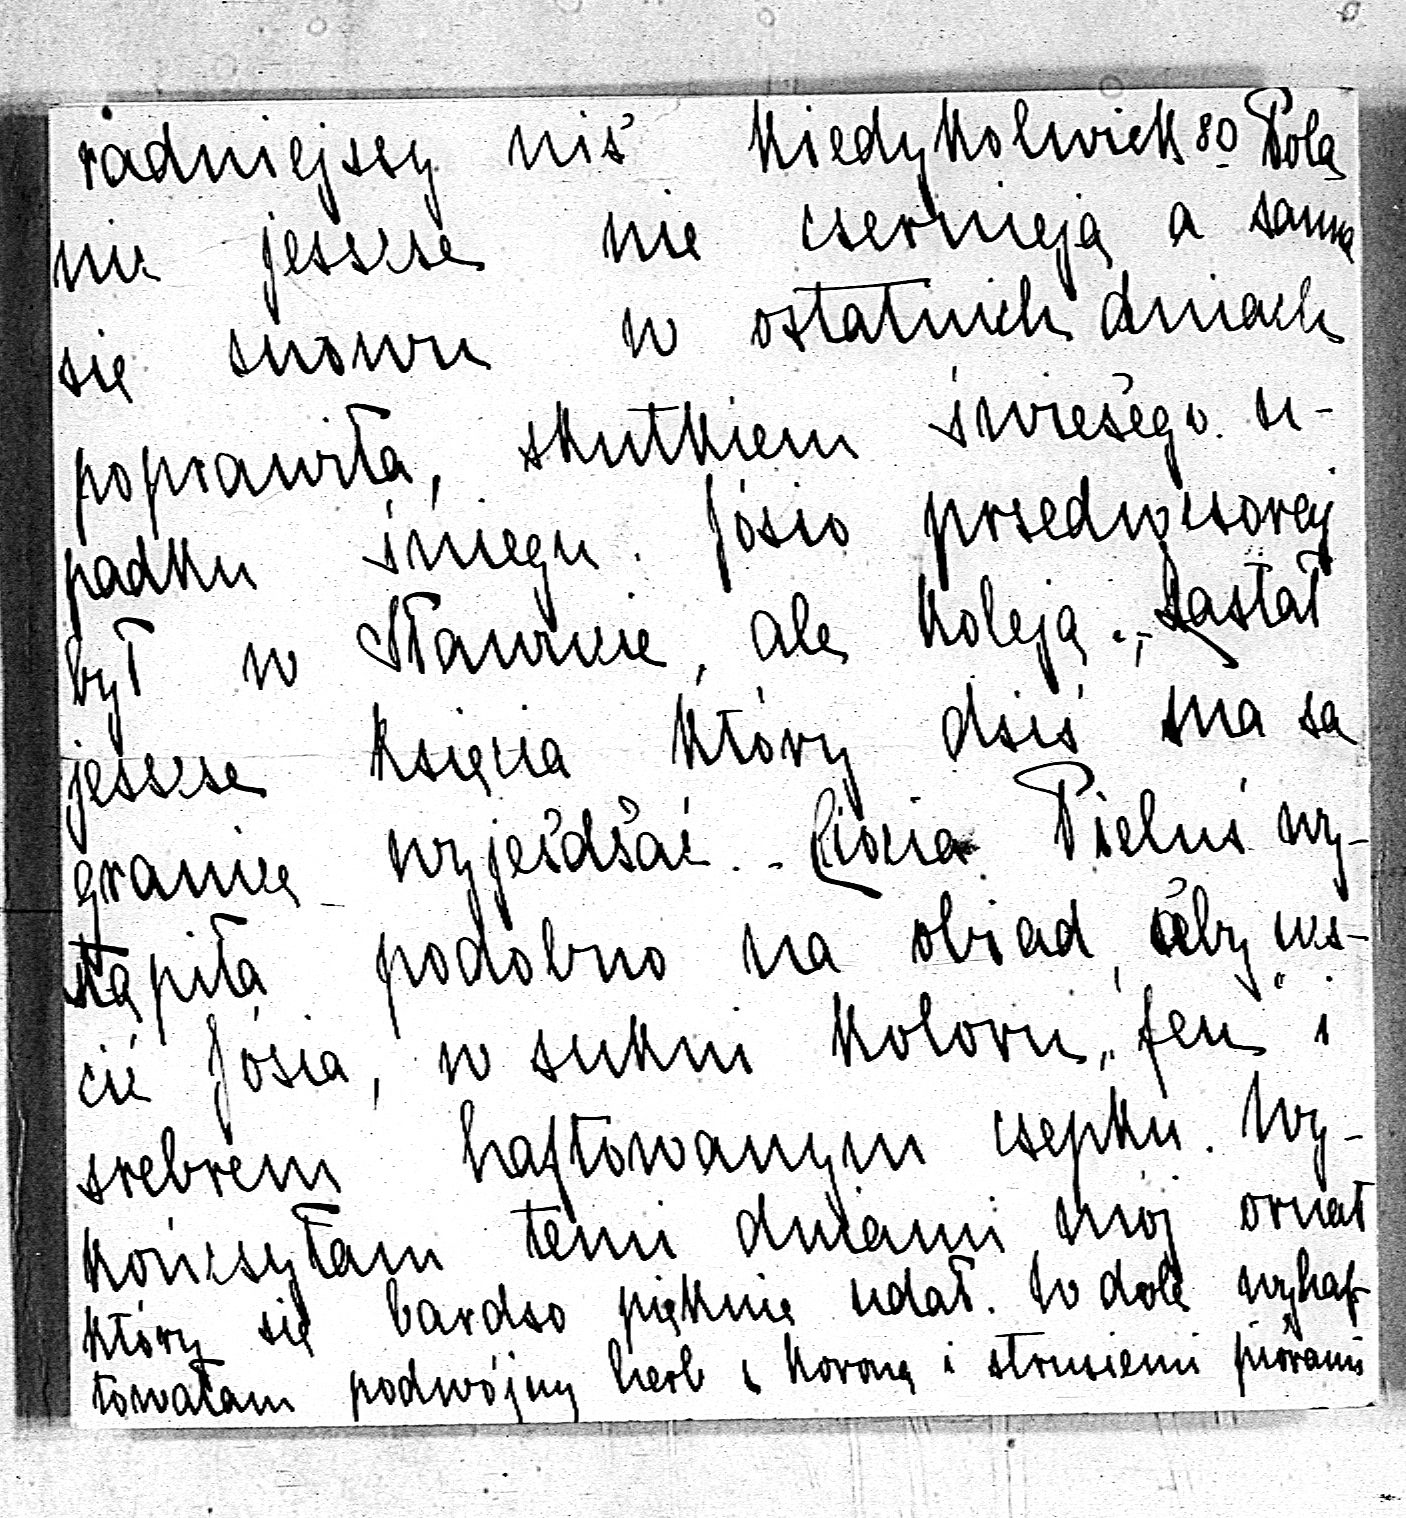 radniejszy niż kiedykolwiek 80 Pola
nie jeszcze nie czernieją a sanna
się znowu w ostatnich dniach
poprawiła, skutkiem świeżego u-
padku śniegu. Józio przedwczoraj
był w Sławucie, ale koleją. Zastał
jeszcze księcia który dziś ma za
granicę wyjeżdżać. - Ciocia Pieluś wy-
stąpiła podobno na obiad, aby ucz-
cić Józia, w sukni koloru „feu" i
srebrem haftowanym czepku. Wy-
kończyłam temi dniami mój ornat
który się bardzo pięknie udał. W dole wyhaf-
towałam podwójny herb z koroną i strusiemi piórami